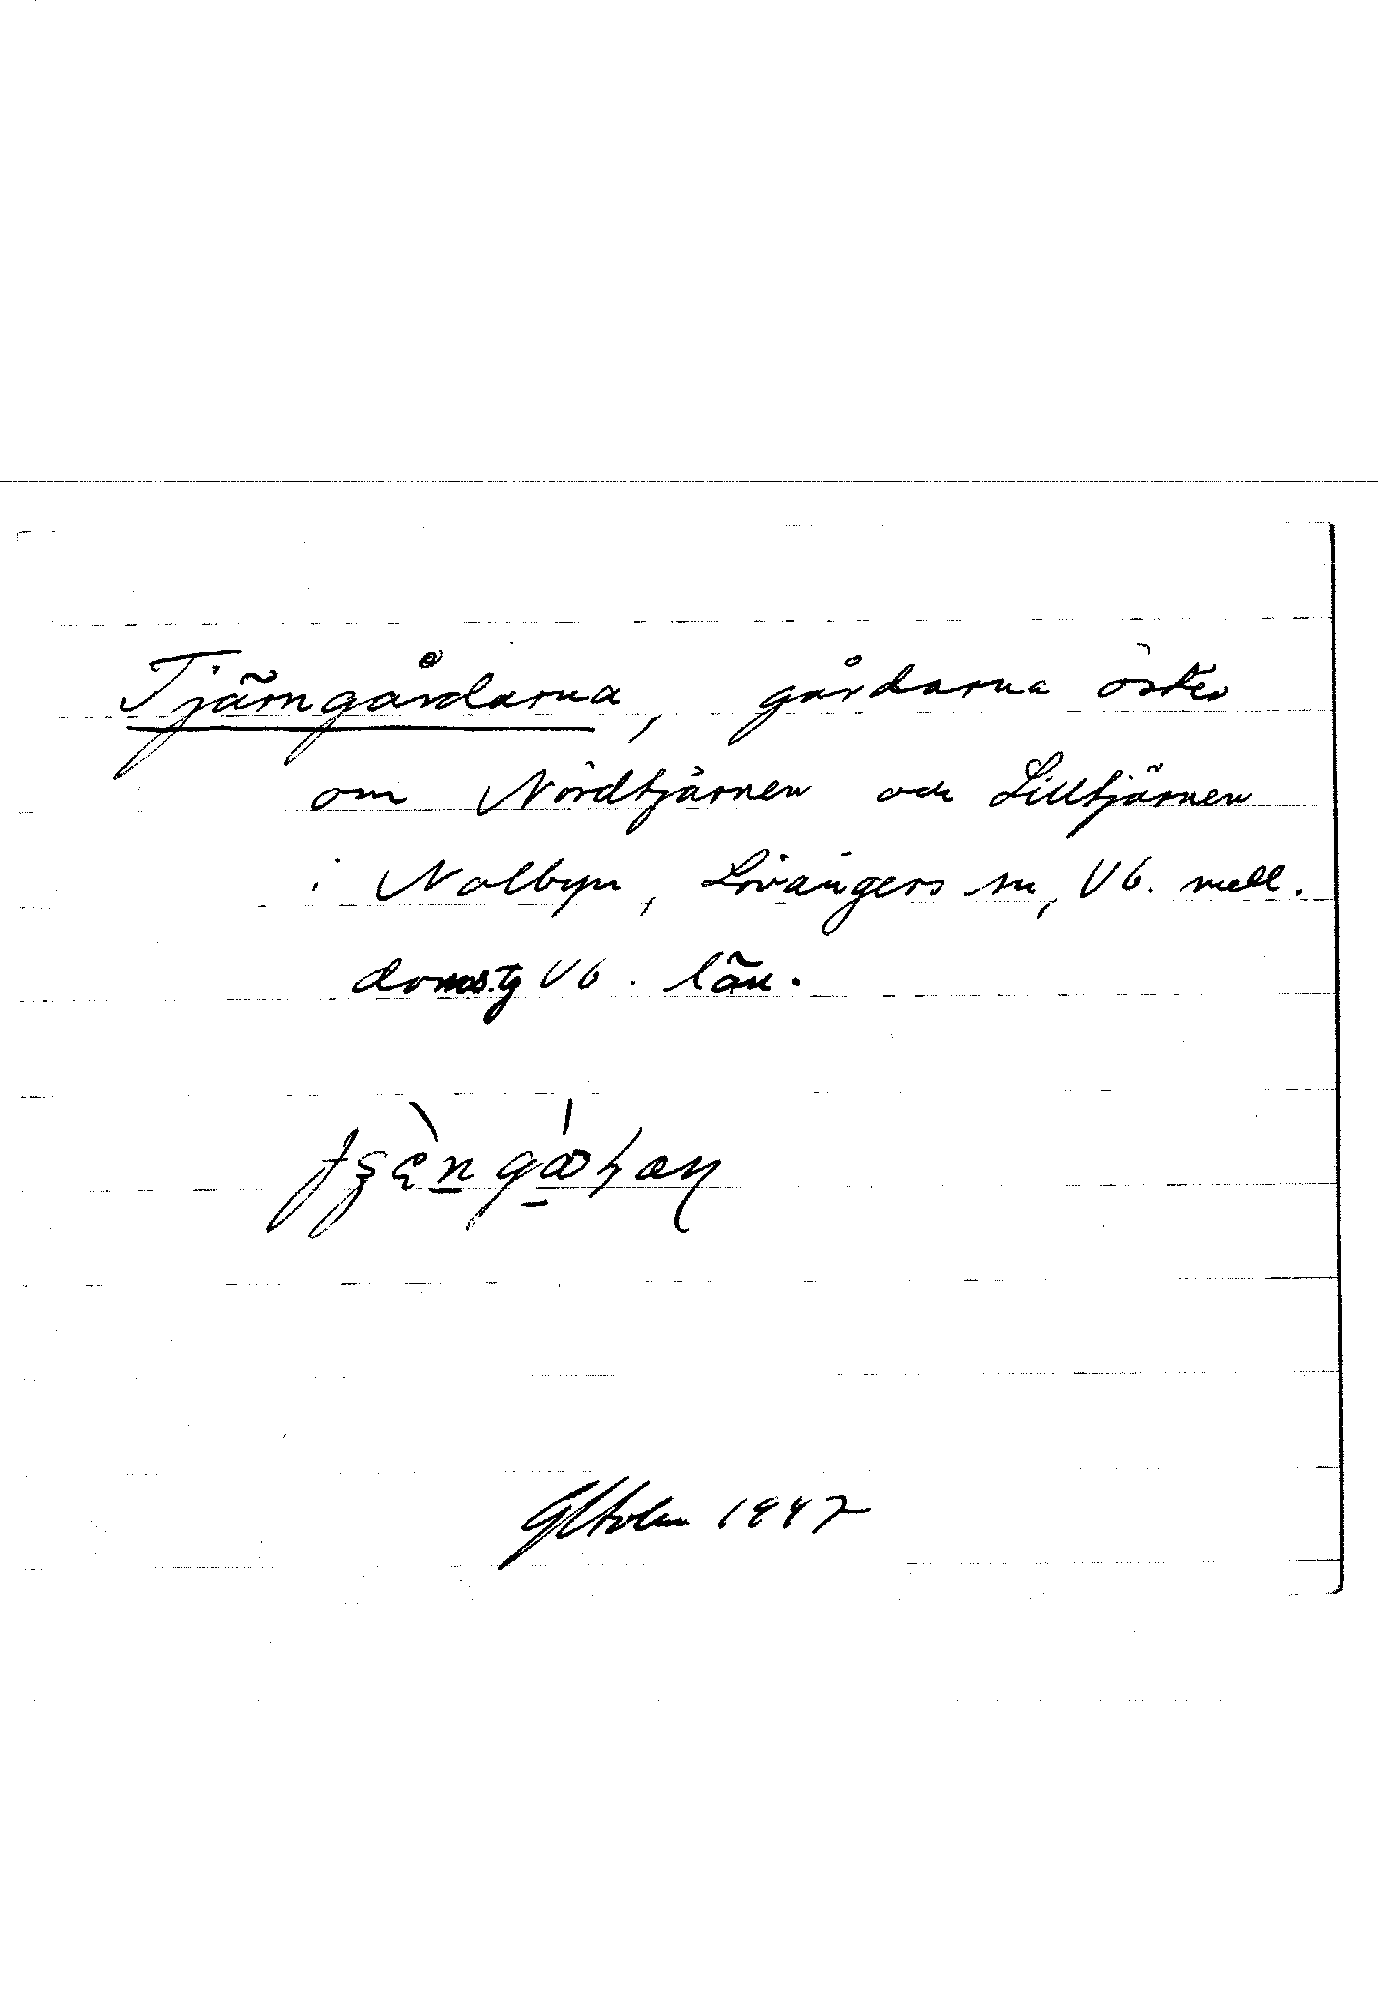 Tjärngårdarna, gårdarna öster
om Nordtjärnen och Lilltjärnen
i Nolbyn, Lövångers sn, Vb. mell.
doms.g Vb. län.
GHolm 1947